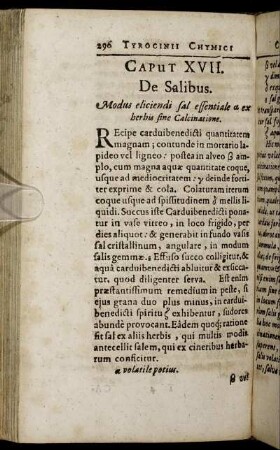 296 TYROCINII CHYMICI
CAPUT XVII.
De Salibus.
Modus eliciendi sal essentiale a ex
herbis sine Calcinatione.
REcipe carduibenedicti quantitatem
magnam; contunde in mortario la-
pideo vel ligneo: postea in alveo ß am-
plo, cum magna aquæ quantitate coque,
usque ad mediocritatem: γ deinde forti-
ter exprime & cola. Colaturam iterum
coque usque ad spissitudinem δ mellis li-
quidi. Succus iste Carduibenedicti pona-
tur in vase vitreo, in loco frigido, per
dies aliquot: & generabit in fundo vasis
sal cristallinum, angulare, in modum
salis gemmæ. ε Effuso succo colligitur, &
aquâ carduibenedicti abluitur & exsicca-
tur, quod diligenter serva. Est enim
præstantissimum remedium in peste, si
ejus grana duo plus minus, in cardui-
benedicti spiritu ζ exhibentur, sudores
abundè provocant. Eâdem quoq; ratione
fit sal ex aliis herbis, qui multis modis
antecellit salem, qui ex cineribus herba-
rum conficitur.
a volatile potius.